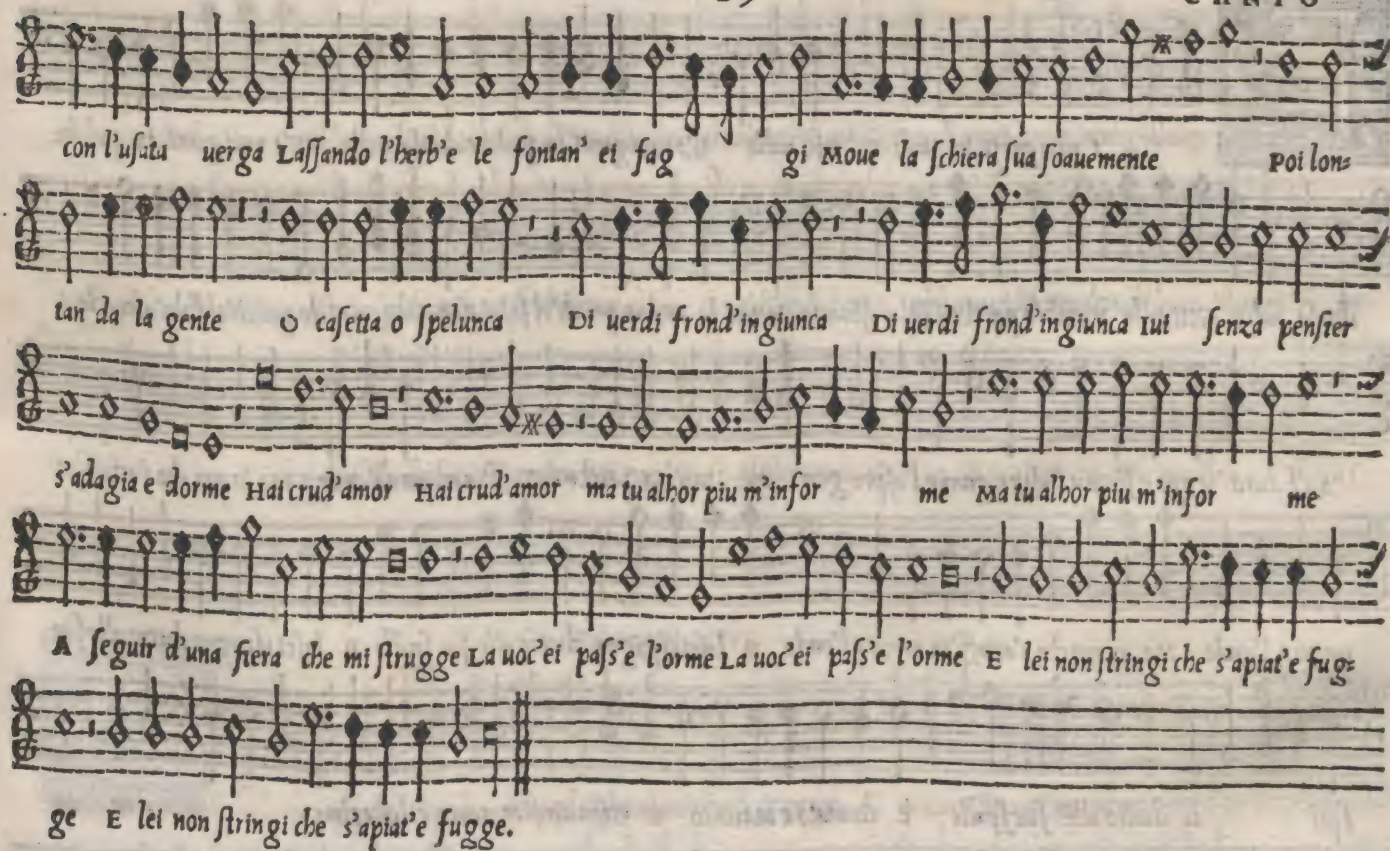 CANTO
con l'uſata uerga Laſſando l'herb'e le fontan' ei fag gi Moue la ſchiera ſua ſoauemente Poi lon=
tan da la gente O caſetta o ſpelunca Di uerdi frond'ingiunca Di uerdi frond'ingiunca Iui ſenza penſier
s'adagia e dorme Hai crud'amor Hai crud'amor ma tu alhor piu m'infor me Ma tu alhor piu m'infor me
A ſeguir d'una fiera che mi ſtrugge La uoc'ei paſs'e l'orme La uoc'ei paſs'e l'orme E lei non ſtringi che s'apiat'e fug=
ge E lei non ſtringi che s'apiat'e fugge.